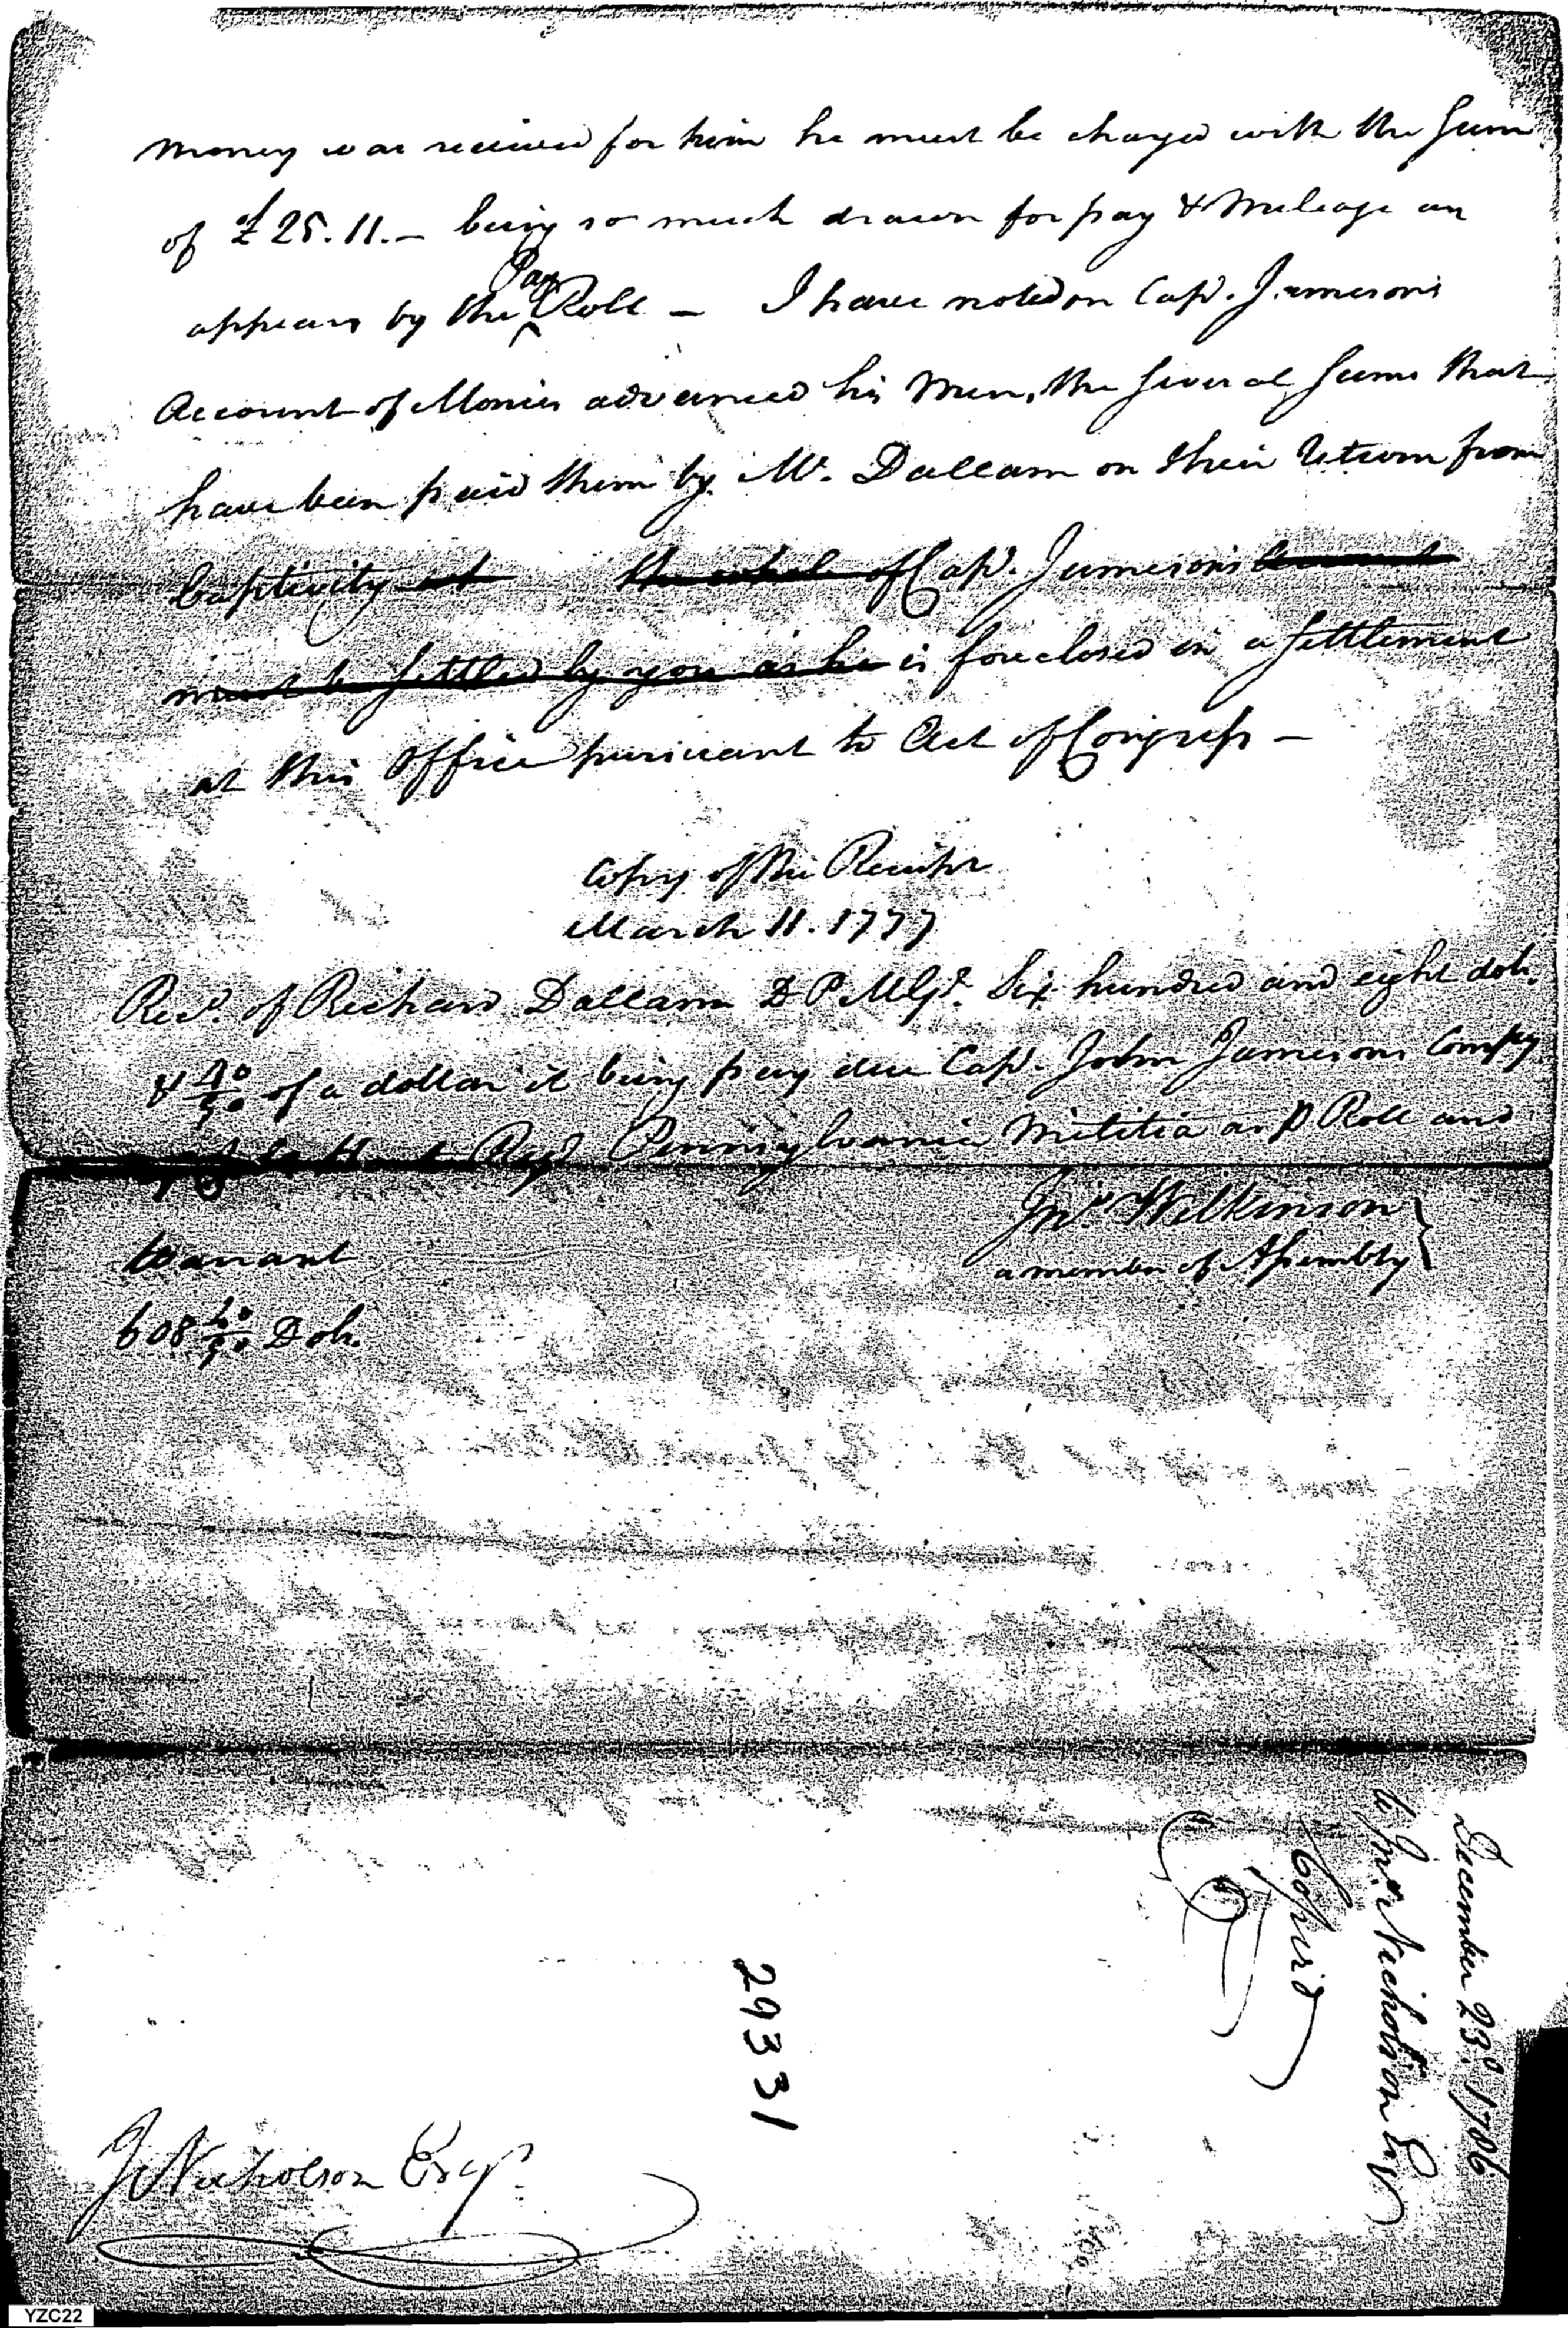 money was received for him he must be charged with the Sum
of £25.11.— being so much drawn for pay & Mileage as
appears by the Pay Roll — I have noted on Cap.t Jamesons
Account of Monies advanced his Men, the Several Sums that
have been paid them by Mr. Dallam on their Return from
Captivity at the whole of Cap.t Jamesons Account
must be settled by you as he is foreclosed in a Settlement
at this Office pursuant to Act of Congress —
Copy of the Receipt
March 11. 1777
Rec.d of Richard Dallam D P M G.l Six hundred and eight dols.
& 40/90 of a dollar it being pay due Cap.t John Jamesons Compy
Reg.t Pennsylvania Militia as p Roll and
Warrant
Jn.o Wilkinson
a member of Assembly
608 40/90 Dols.
December 23.d 1786
to Jn.o Nicholson Esq
Copied
29331
J Nicholson Esq.r
YZC22